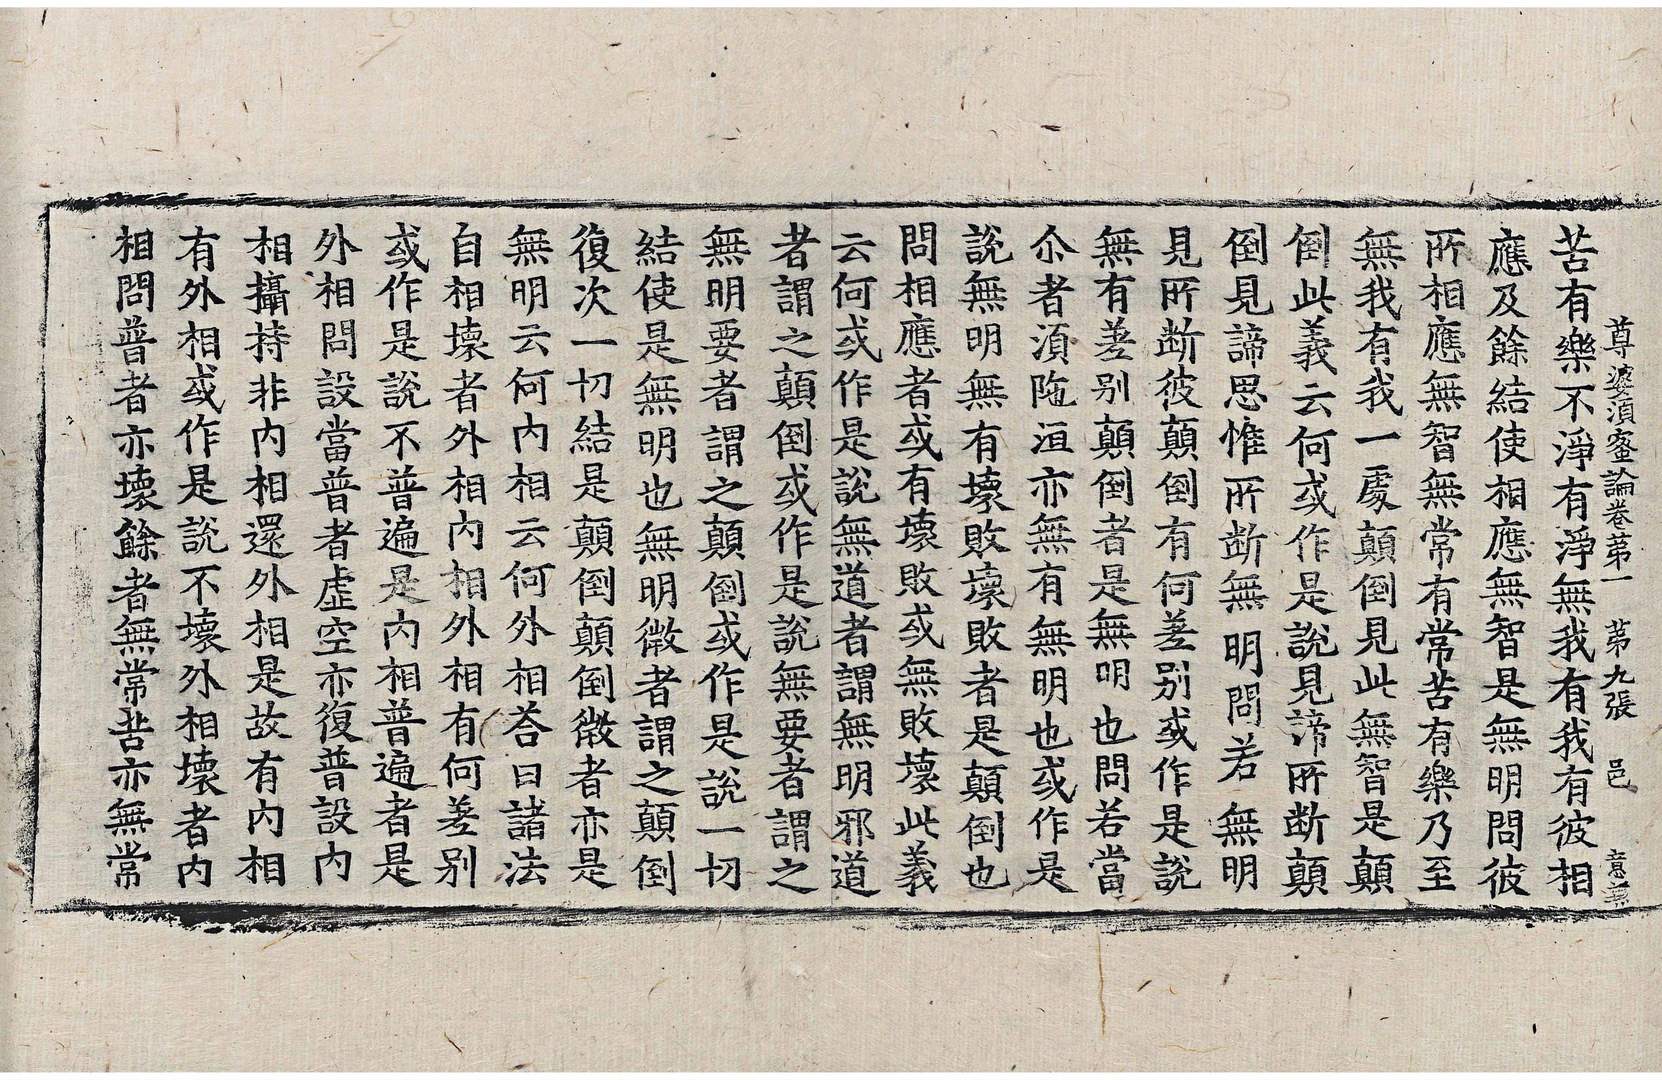 尊婆須蜜論卷苐一 苐九張 邑 意無
苦有樂不淨有淨無我有我有彼相
應及餘結使相應無智是無明問彼
所相應無智無常有常苦有樂乃至
無我有我一處顛倒見此無智是顛
倒此義云何或作是說見諦所断顛
倒見諦思惟所断無明問若無明
見所断彼顛倒有何差别或作是說
無有差别顛倒者是無明也問若當
尒者須陁洹亦無有無明也或作是
說無明無有壞敗壞敗者是顛倒也
問相應者或有壞敗或無敗壞此義
云何或作是說無道者謂無明邪道
者謂之顛倒或作是說無要者謂之
無明要者謂之顛倒或作是說一切
結使是無明也無明微者謂之顛倒
復次一切結是顛倒顛倒微者亦是
無明云何內相云何外相荅曰諸法
自相壞者外相內相外相有何差别
或作是說不普遍是內相普遍者是
外相問設當普者虛空亦復普設內
相攝持非內相還外相是故有內相
有外相或作是說不壞外相壞者內
相問普者亦壞餘者無常苦亦無常